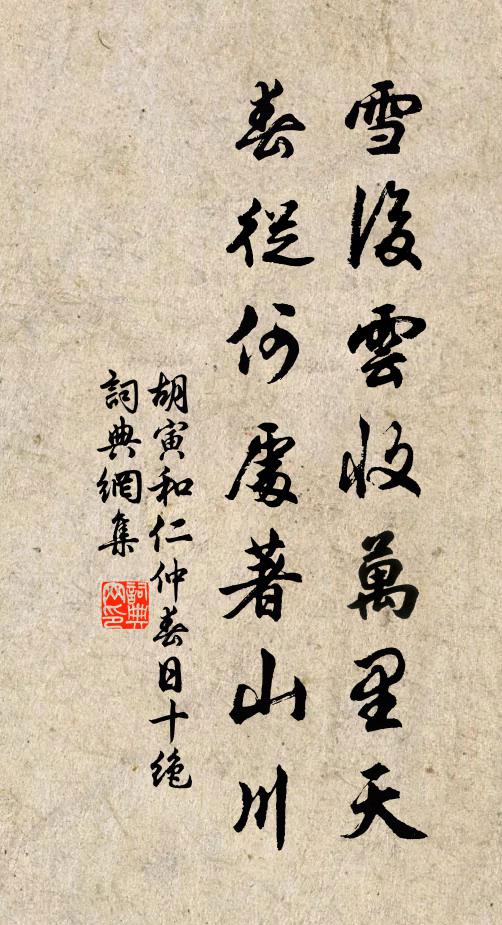 雪後雲收萬里天
春從何處著山川
胡寅和仁仲春日十絶
詞典網集
詞典網印